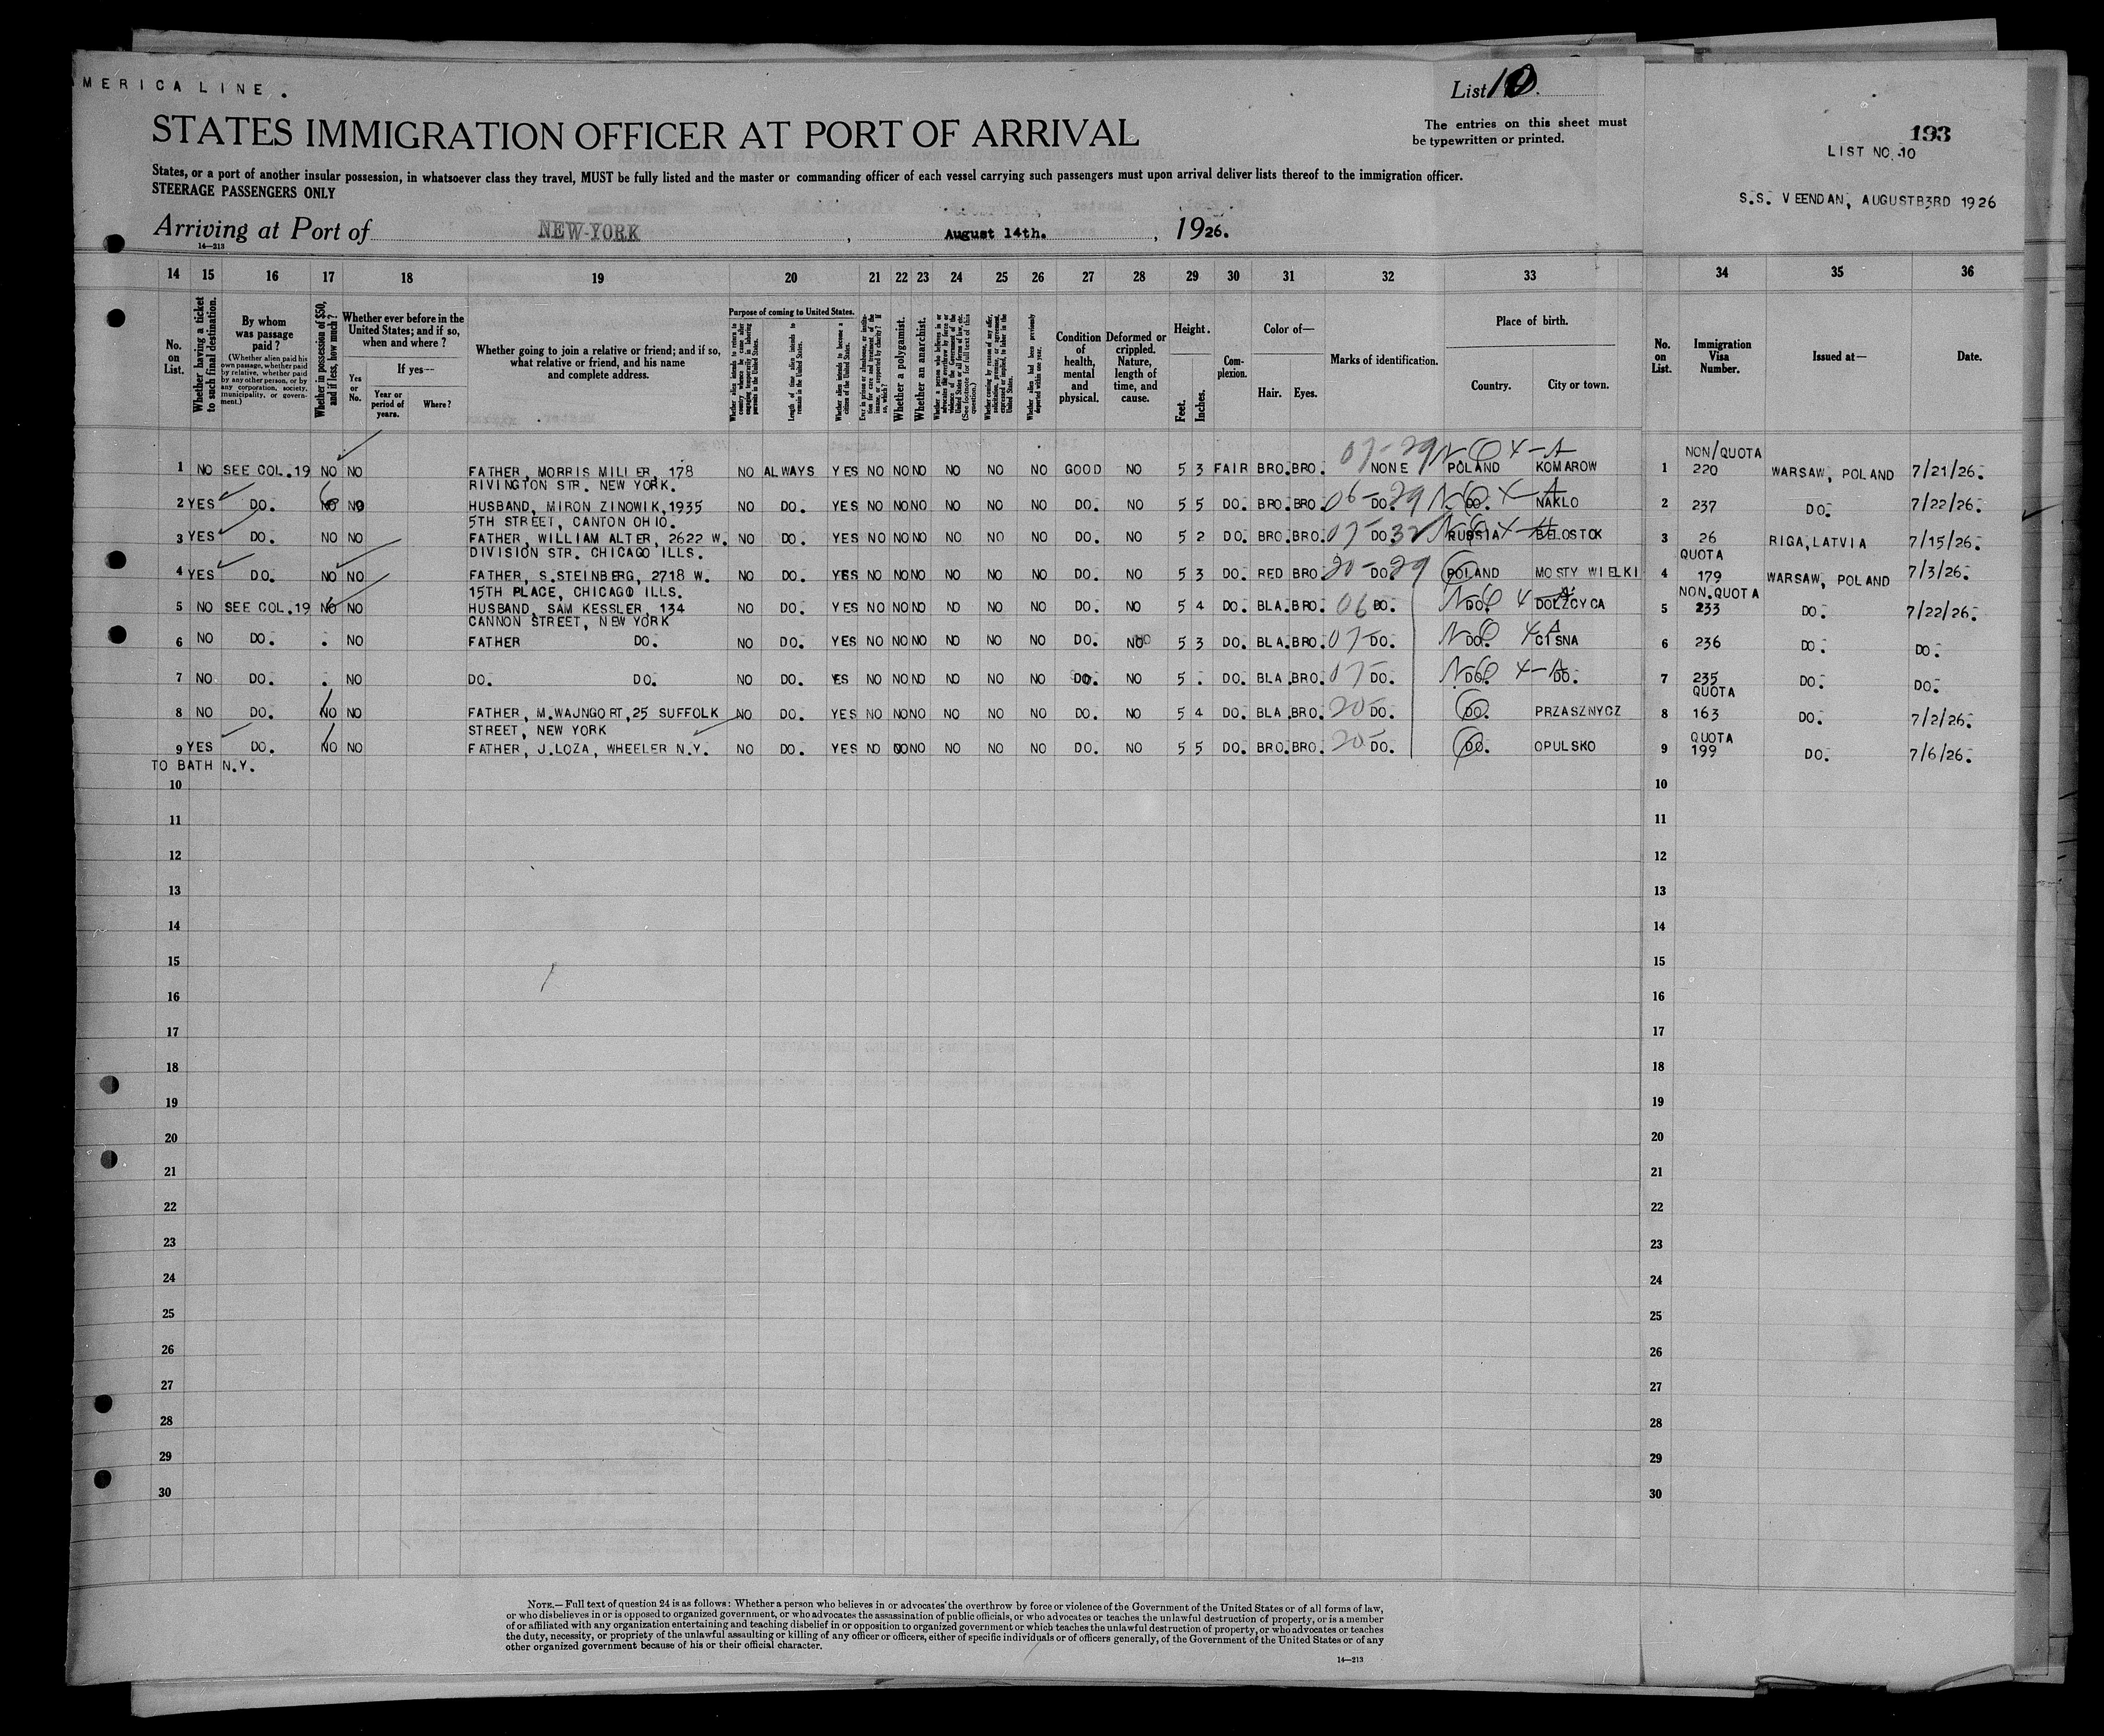 MERICA LINE.
List 10.
STATES IMMIGRATION OFFICER AT PORT OF ARRIVAL
The entries on this sheet must
be typewritten or printed.
193
LIST NO. 10
States, or a port of another insular possession, in whatsoever class they travel, MUST be fully listed and the master or commanding officer of each vessel carrying such passengers must upon arrival deliver lists thereof to the immigration officer.
STEERAGE PASSENGERS ONLY
S.S. VEENDAN, AUGUSTB3RD 1926
Arriving at Port of NEW-YORK, August 14th., 1926.
14—213
14 15 16 17 18 19 20 21 22 23 24 25 26 27 28 29 30 31 32 33 34 35 36
No. on List.
Whether having a ticket to such final destination.
By whom was passage paid?
(Whether alien paid his own passage, whether paid by relative, whether paid by any other person, or by any corporation, society, municipality, or government.)
Whether in possession of $50, and if less, how much?
Whether ever before in the United States; and if so, when and where?
Yes or No.
If yes—
Year or period of years.
Where?
Whether going to join a relative or friend; and if so, what relative or friend, and his name and complete address.
Purpose of coming to United States.
Whether alien intends to return to country whence he came after engaging temporarily in laboring pursuits in the United States.
Length of time alien intends to remain in the United States.
Whether alien intends to become a citizen of the United States.
Ever in prison or almshouse, or institution for care and treatment of the insane, or supported by charity? If so, which?
Whether a polygamist.
Whether an anarchist.
Whether a person who believes in or advocates the overthrow by force or violence of the Government of the United States or all forms of law, etc. (See footnote for full text of this question.)
Whether coming by reason of any offer, solicitation, promise, or agreement, expressed or implied, to labor in the United States.
Whether alien had been previously deported within one year.
Condition of health, mental and physical.
Deformed or crippled. Nature, length of time, and cause.
Height.
Feet. Inches.
Complexion.
Color of—
Hair. Eyes.
Marks of identification.
Place of birth.
Country. City or town.
No. on List.
Immigration Visa Number.
Issued at—
Date.
07-29 NQ 4-A NON/QUOTA
1 NO SEE COL.19 NO NO FATHER, MORRIS MILLER, 178 NO ALWAYS YES NO NO NO NO NO NO GOOD NO 5 3 FAIR BRO. BRO. NONE POLAND KOMAROW 1 220 WARSAW, POLAND 7/21/26.
RIVINGTON STR. NEW YORK.
2 YES DO. NO NO HUSBAND, MIRON ZINOWIK, 1935 NO DO. YES NO NO NO NO NO NO DO. NO 5 5 DO. BRO. BRO. 06-29 DO. NQ 4-A DO. NAKLO 2 237 DO. 7/22/26.
5TH STREET, CANTON OHIO.
3 YES DO. NO NO FATHER, WILLIAM ALTER, 2622 W. NO DO. YES NO NO NO NO NO NO DO. NO 5 2 DO. BRO. BRO. 07-32 DO. RUSSIA BELOSTOK 3 26 RIGA, LATVIA 7/15/26.
DIVISION STR. CHICAGO ILLS.
QUOTA
4 YES DO. NO NO FATHER, S. STEINBERG, 2718 W. NO DO. YES NO NO NO NO NO NO DO. NO 5 3 DO. RED BRO 20-29 DO. POLAND MOSTY WIELKI 4 179 WARSAW, POLAND 7/3/26.
15TH PLACE, CHICAGO ILLS.
NON.QUOTA
5 NO SEE COL.19 NO NO HUSBAND, SAM KESSLER, 134 NO DO. YES NO NO NO NO NO NO DO. NO 5 4 DO. BLA. BRO. 06 DO. NQ 4-A DO. DOLZCYCA 5 233 DO. 7/22/26.
CANNON STREET, NEW YORK
6 NO DO. . NO FATHER DO. NO DO. YES NO NO NO NO NO NO DO. NO 5 3 DO. BLA. BRO. 07- DO. NQ 4-A DO. CISNA 6 236 DO. DO.
7 NO DO. . NO DO. DO. NO DO. YES NO NO NO NO NO NO DO. NO 5 . DO. BLA. BRO. 07- DO. NQ 4-A DO. DO. 7 235 DO. DO.
QUOTA
8 NO DO. NO NO FATHER, M. WAJNGORT, 25 SUFFOLK NO DO. YES NO NO NO NO NO NO DO. NO 5 4 DO. BLA. BRO. 20- DO. DO. PRZASZNYCZ 8 163 DO. 7/2/26.
STREET, NEW YORK
QUOTA
9 YES DO. NO NO FATHER, J. LOZA, WHEELER N.Y. NO DO. YES NO NO NO NO NO NO DO. NO 5 5 DO. BRO. BRO. 20- DO. DO. OPULSKO 9 199 DO. 7/6/26.
TO BATH N.Y.
10 10
11 11
12 12
13 13
14 14
15 15
16 16
17 17
18 18
19 19
20 20
21 21
22 22
23 23
24 24
25 25
26 26
27 27
28 28
29 29
30 30
NOTE.—Full text of question 24 is as follows: Whether a person who believes in or advocates the overthrow by force or violence of the Government of the United States or of all forms of law,
or who disbelieves in or is opposed to organized government, or who advocates the assassination of public officials, or who advocates or teaches the unlawful destruction of property, or is a member
of or affiliated with any organization entertaining and teaching disbelief in or opposition to organized government or which teaches the unlawful destruction of property, or who advocates or teaches
the duty, necessity, or propriety of the unlawful assaulting or killing of any officer or officers, either of specific individuals or of officers generally, of the Government of the United States or of any
other organized government because of his or their official character.
14—213